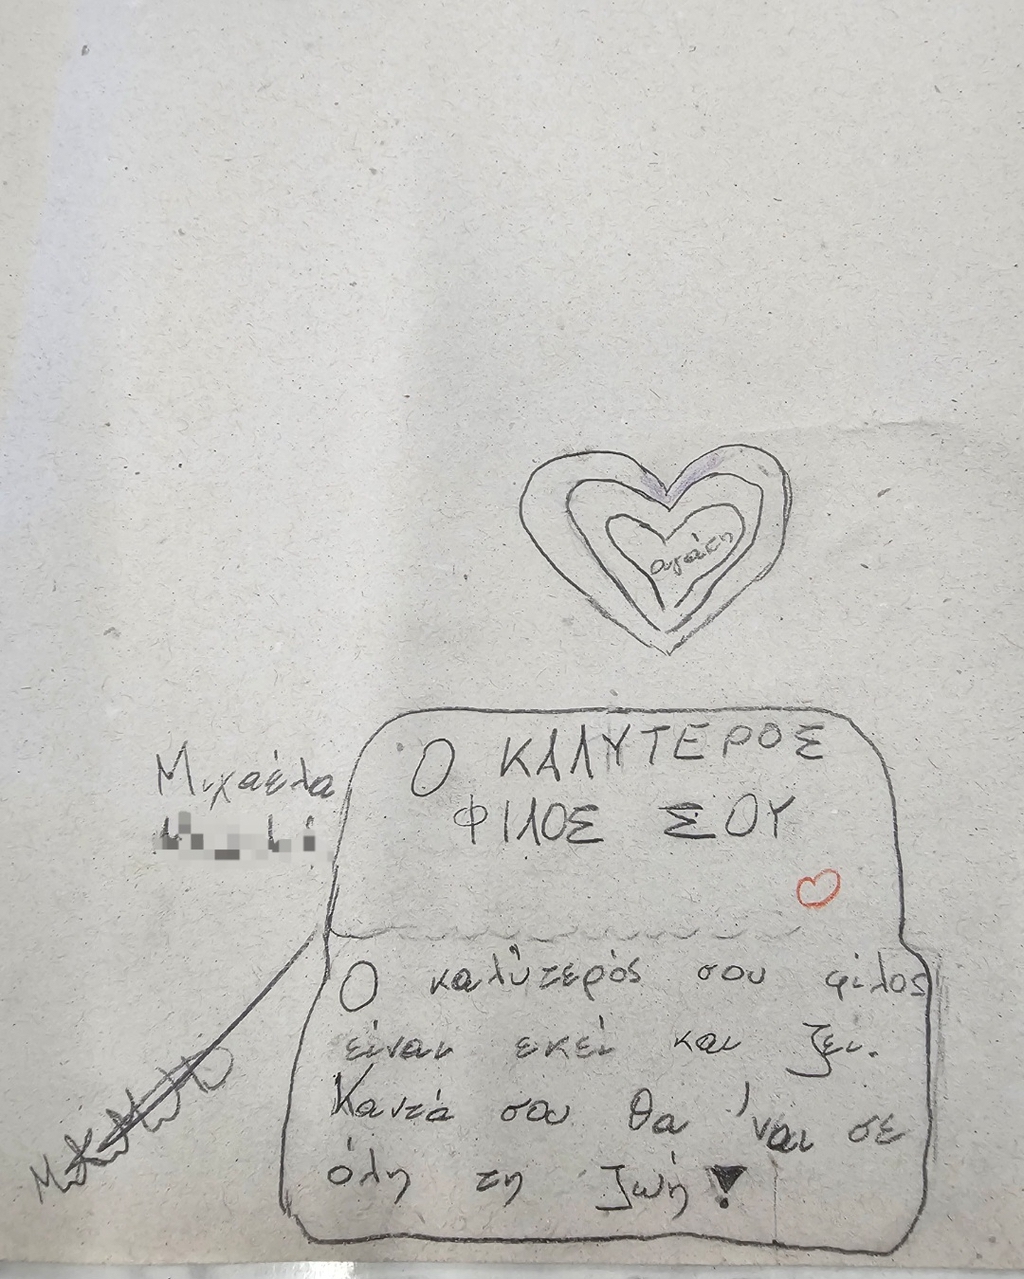 αγάπη
Ο ΚΑΛΥΤΕΡΟΣ
ΦΙΛΟΣ ΣΟΥ
Μιχαέλα
Ο καλύτερός σου φίλος
είναι εκεί και ζει.
Κοντά σου θα 'ναι σε
όλη τη ζωή!